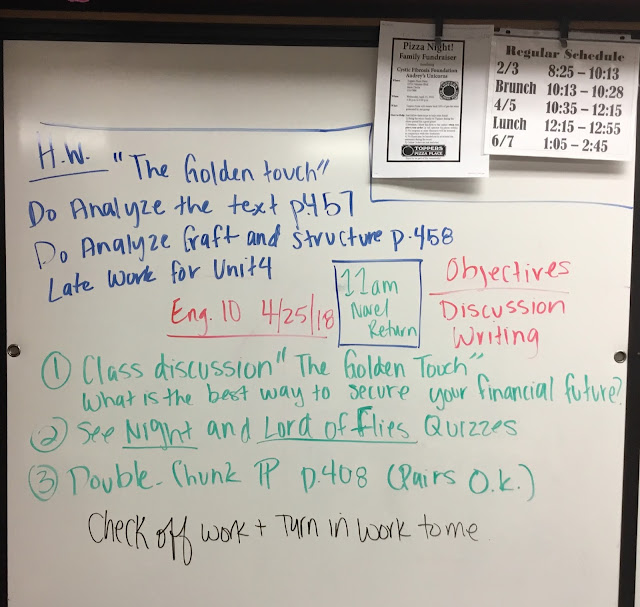 Pizza Night!
Family Fundraiser
Cystic Fibrosis Foundation
Audery's Unicorns
TOPPERS
PIZZA PLACE
Regular Schedule
2/3 8:25 – 10:13
Brunch 10:13 – 10:28
4/5 10:35 – 12:15
Lunch 12:15 – 12:55
6/7 1:05 – 2:45
H.W. "The Golden touch"
Do Analyze the text p.457
Do Analyze Craft and structure p.458
Late Work for Unit 4
Eng. 10 4/25/18
11am
Novel
Return
Objectives
Discussion
Writing
① Class discussion "The Golden Touch"
What is the best way to secure your financial future?
② See Night and Lord of Flies Quizzes
③ Double-Chunk TP p.408 (Pairs O.k.)
Check off work + Turn in work to me